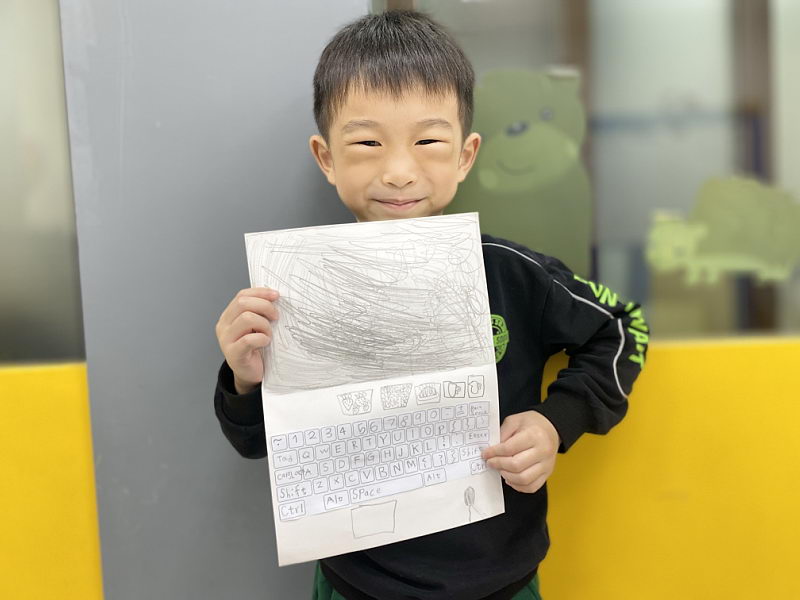 ~ 1 2 3 4 5 6 7 8 9 0 - ±
Tad Q W E R T Y U I O P { }
CapsLock A S D F G H J K L Enter
Shift Z X C V B N M Shift
Ctrl Alt Space Alt Ctrl